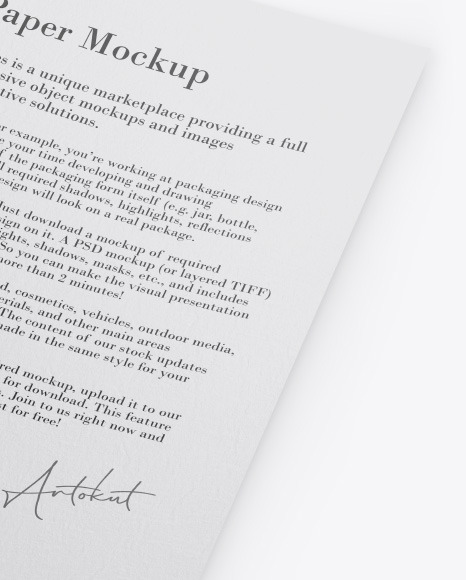 Paper Mockup
es is a unique marketplace providing a full
sive object mockups and images
tive solutions.
or example, you're working at packaging design
e your time developing and drawing
f the packaging form itself (e.g. jar, bottle,
l required shadows, highlights, reflections
esign will look on a real package.
Just download a mockup of required
sign on it. A PSD mockup (or layered TIFF)
ights, shadows, masks, etc., and includes
So you can make the visual presentation
more than 2 minutes!
d, cosmetics, vehicles, outdoor media,
erials, and other main areas
The content of our stock updates
made in the same style for your
red mockup, upload it to our
for download. This feature
. Join to us right now and
st for free!
Autokut